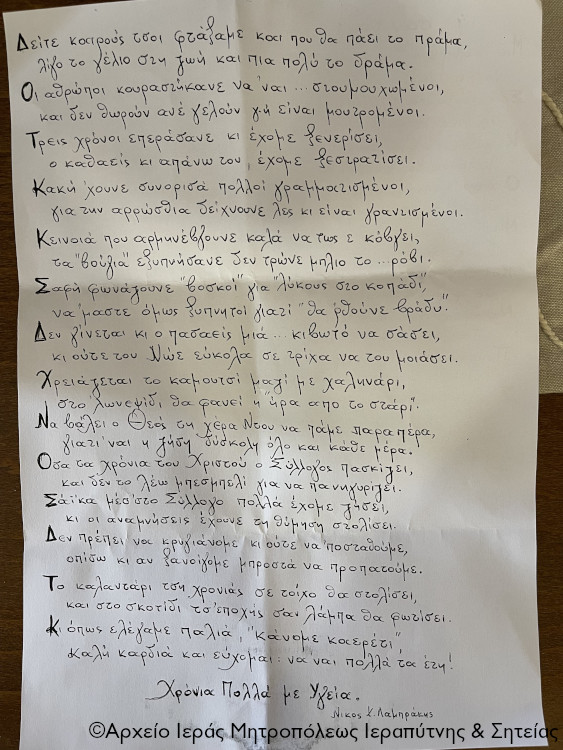 Δείτε καιρούς τσοι φτάξαμε και που θα πάει το πράμα,
λίγο το γέλιο στη ζωή και πια πολύ το δράμα.
Οι αθρώποι κουραστήκανε να 'ναι ... στουμουχωμένοι,
και δεν θωρούν ανέ γελούν γή είναι μουτρομένοι.
Τρεις χρόνοι επεράσανε κι έχομε ξενερίσει,
ο καθαείς κι απάνω του, έχομε ξεστρατίσει.
Κακή 'χουνε συνορισά πολλοί γραμματισμένοι,
για την αρρώσθια δείχνουνε λες κι είναι γραντισμένοι.
Κεινονά που αρμηνέβγουνε καλά να τως ε κόβγει,
τα "βούγια" εξυπνήσανε δεν τρώνε μπλιο το ...ρόβι.
Σαφή φωνάζουνε "βοσκοί" για "λύκους στο κοπάδι",
να 'μαστε όμως ξυπνητοί γιατί "θα ρθούνε βράδυ".
Δεν γίνεται κι ο πασαείς μιά ... κιβωτό να σάσει,
κι ούτε του Νώε εύκολα σε τρίχα να του μοιάσει.
Χρειάζεται το καμουτσί μαζί με χαληνάρι,
στο λωνεψίδι θα φανεί η "ήρα απο το στάρι".
Να βάλει ο Θεός τη χέρα Ντου να πάμε παραπέρα,
γιατί 'ναι η ζήση δύσκολη όλο και κάθε μέρα.
Οσα τα χρόνια του Χριστού ο Σύλλογος πασκίζει,
και δεν το λέω μπεσμπελί για να πανηγυρίζει.
Σάικα μέσ' στο Σύλλογο πολλά έχομε ζήσει,
κι οι αναμνήσεις έχουνε τη θύμηση στολίσει.
Δεν πρέπει να κρυγιάνομε κι ούτε να 'ποσταθούμε,
οπίσω κι αν ξανοίγομε μπροστά να προπατούμε.
Το καλαντάρι τση χρονιάς σε τοίχο θα στολίσει,
και στο σκοτίδι τσ' εποχής σαν λάμπα θα φωτίσει.
Κι όπως ελέγαμε παλιά, "κάνομε καερέτι",
καλή καρδιά και εύχομαι: να ναι πολλά τα έτη!
Χρόνια Πολλά με Υγεία.
Νίκος Χ. Λαμπράκης
©Αρχείο Ιεράς Μητροπόλεως Ιεραπύτνης & Σητείας